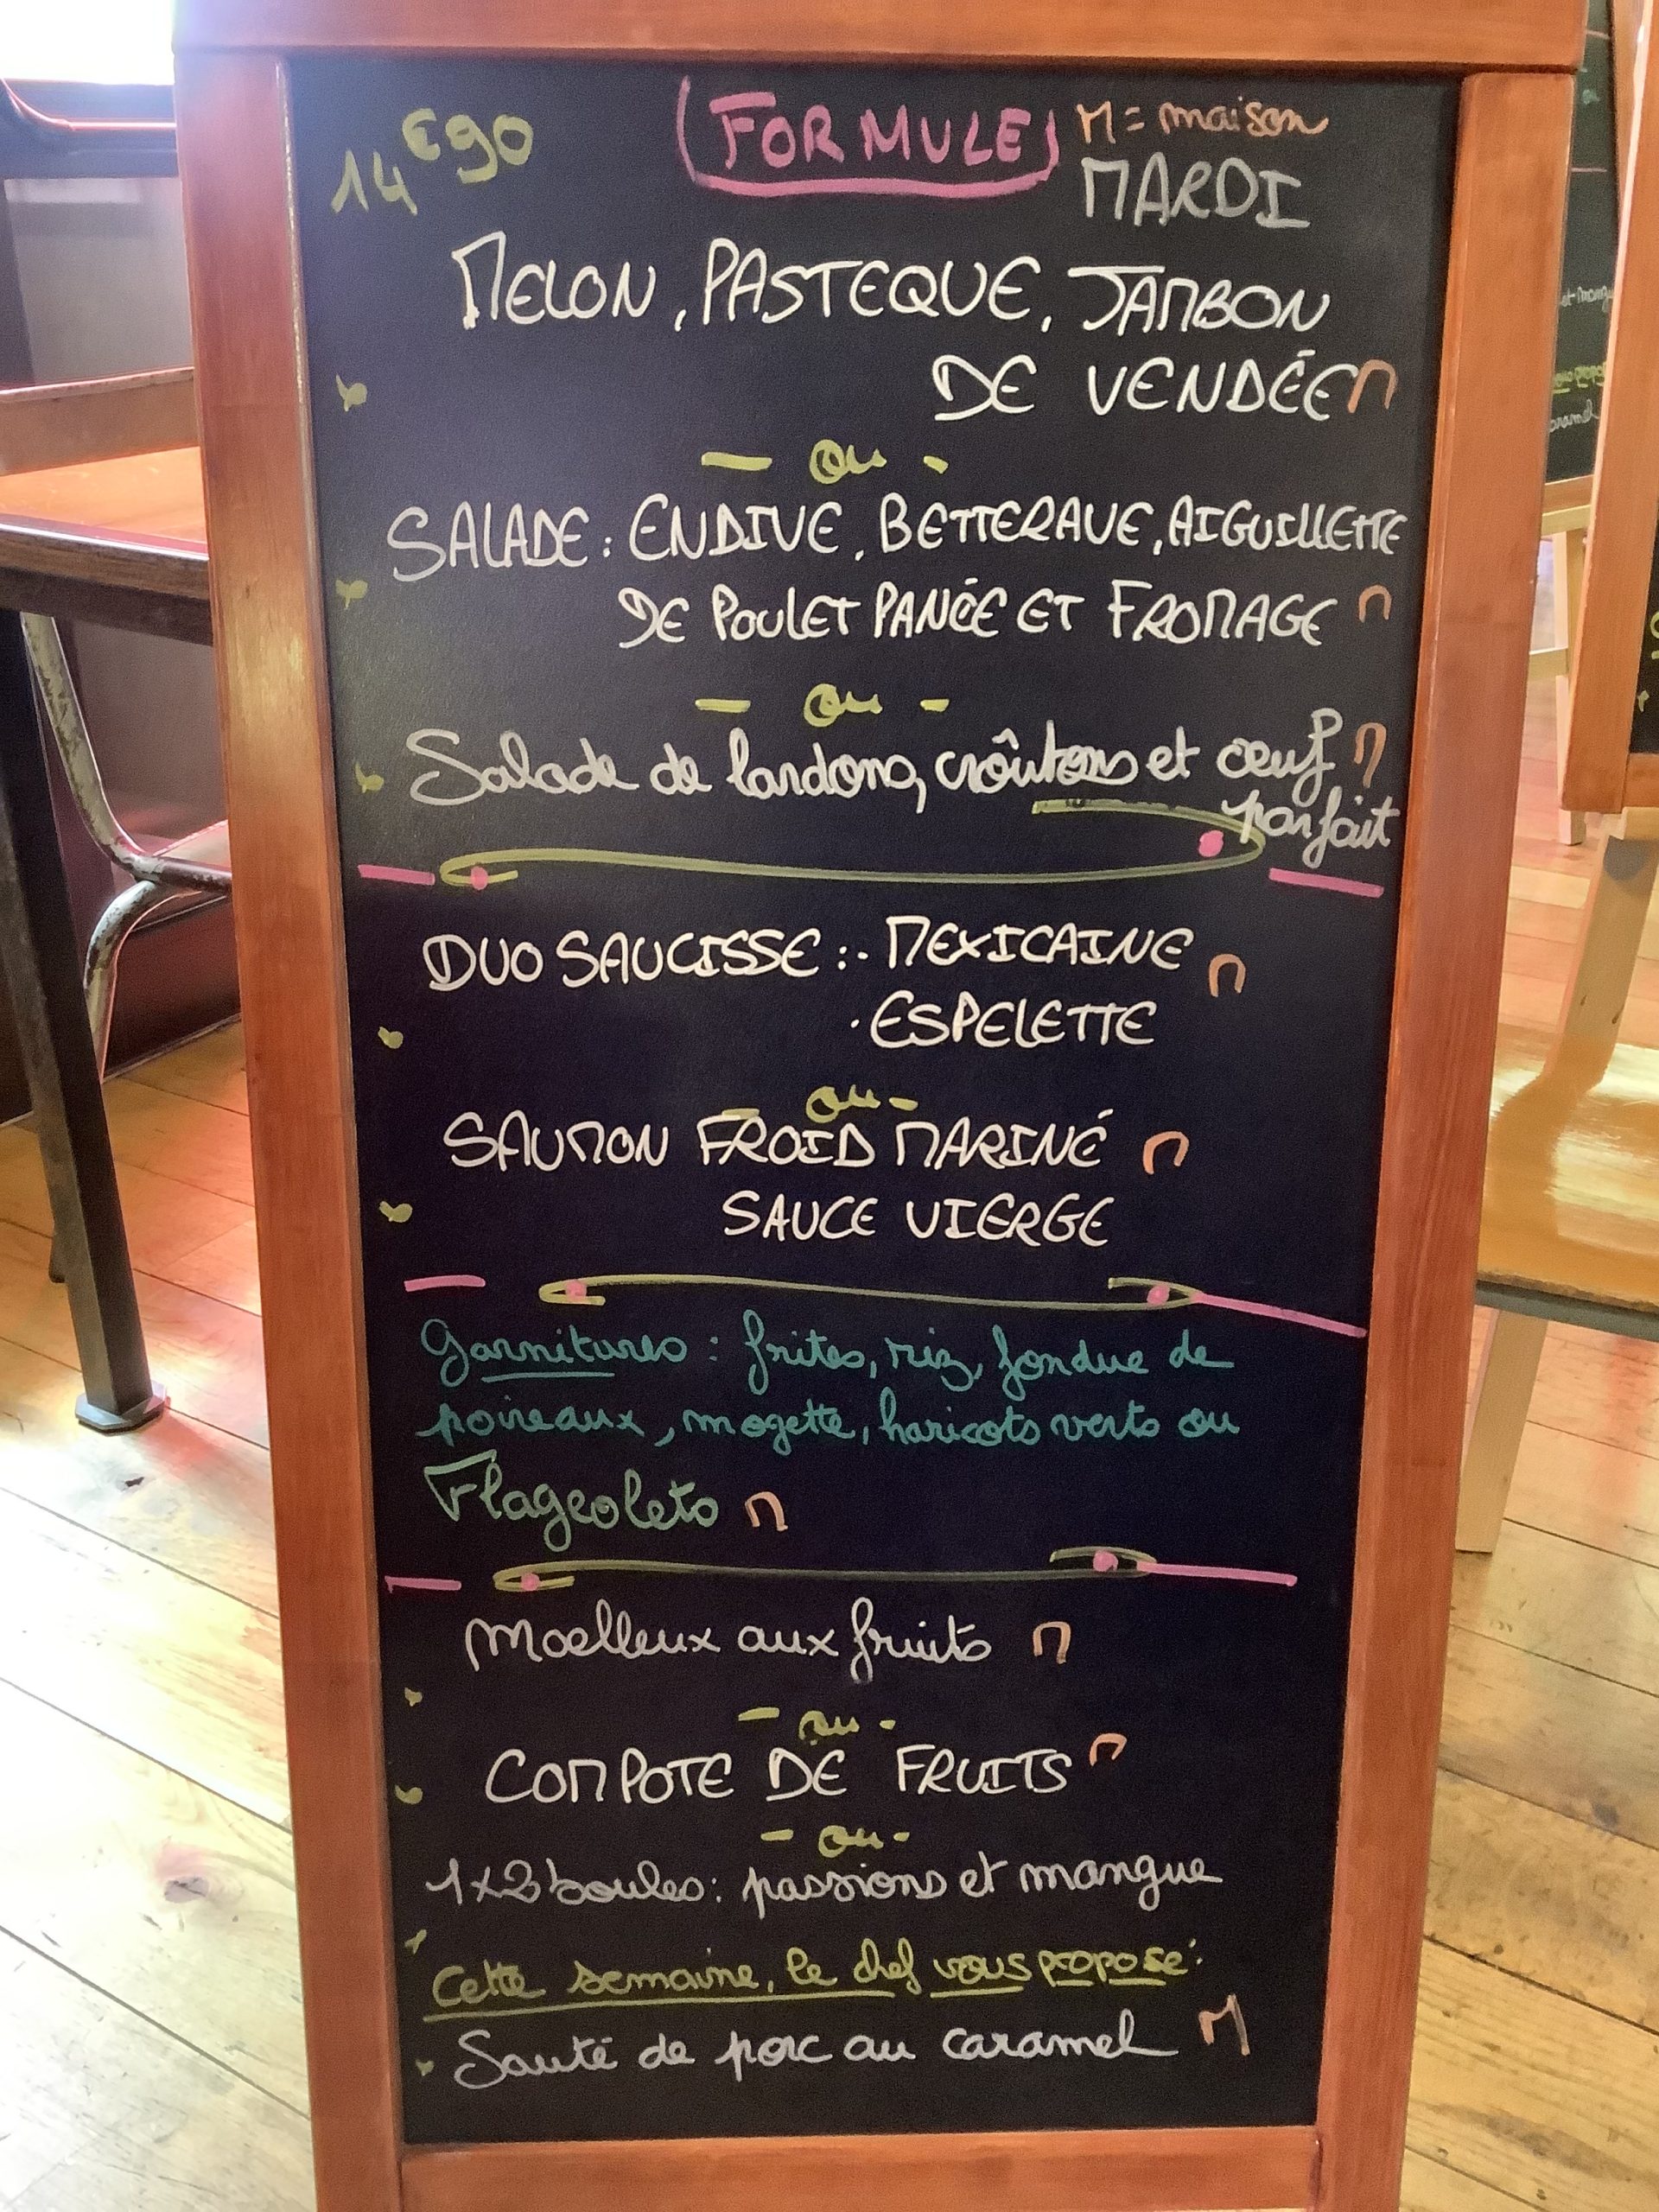 14€90 (FORMULE) M = maison
MARDI
MELON, PASTEQUE, JAMBON
DE VENDÉE M
- ou -
SALADE : ENDIVE, BETTERAVE, AIGUILLETTE
DE POULET PANÉE ET FROMAGE M
- ou -
Salade de lardons, croûtons et oeuf M
parfait
DUO SAUCISSE : · MEXICAINE M
· ESPELETTE
- ou -
SAUMON FROID MARINÉ M
SAUCE VIERGE
Garnitures : frites, riz, fondue de
poireaux, mogette, haricots verts ou
Flageolets M
Moelleux aux fruits M
- ou -
COMPOTE DE FRUITS M
- ou -
1x2 boules : passions et mangue
Cette semaine, le chef vous propose :
Sauté de porc au caramel M